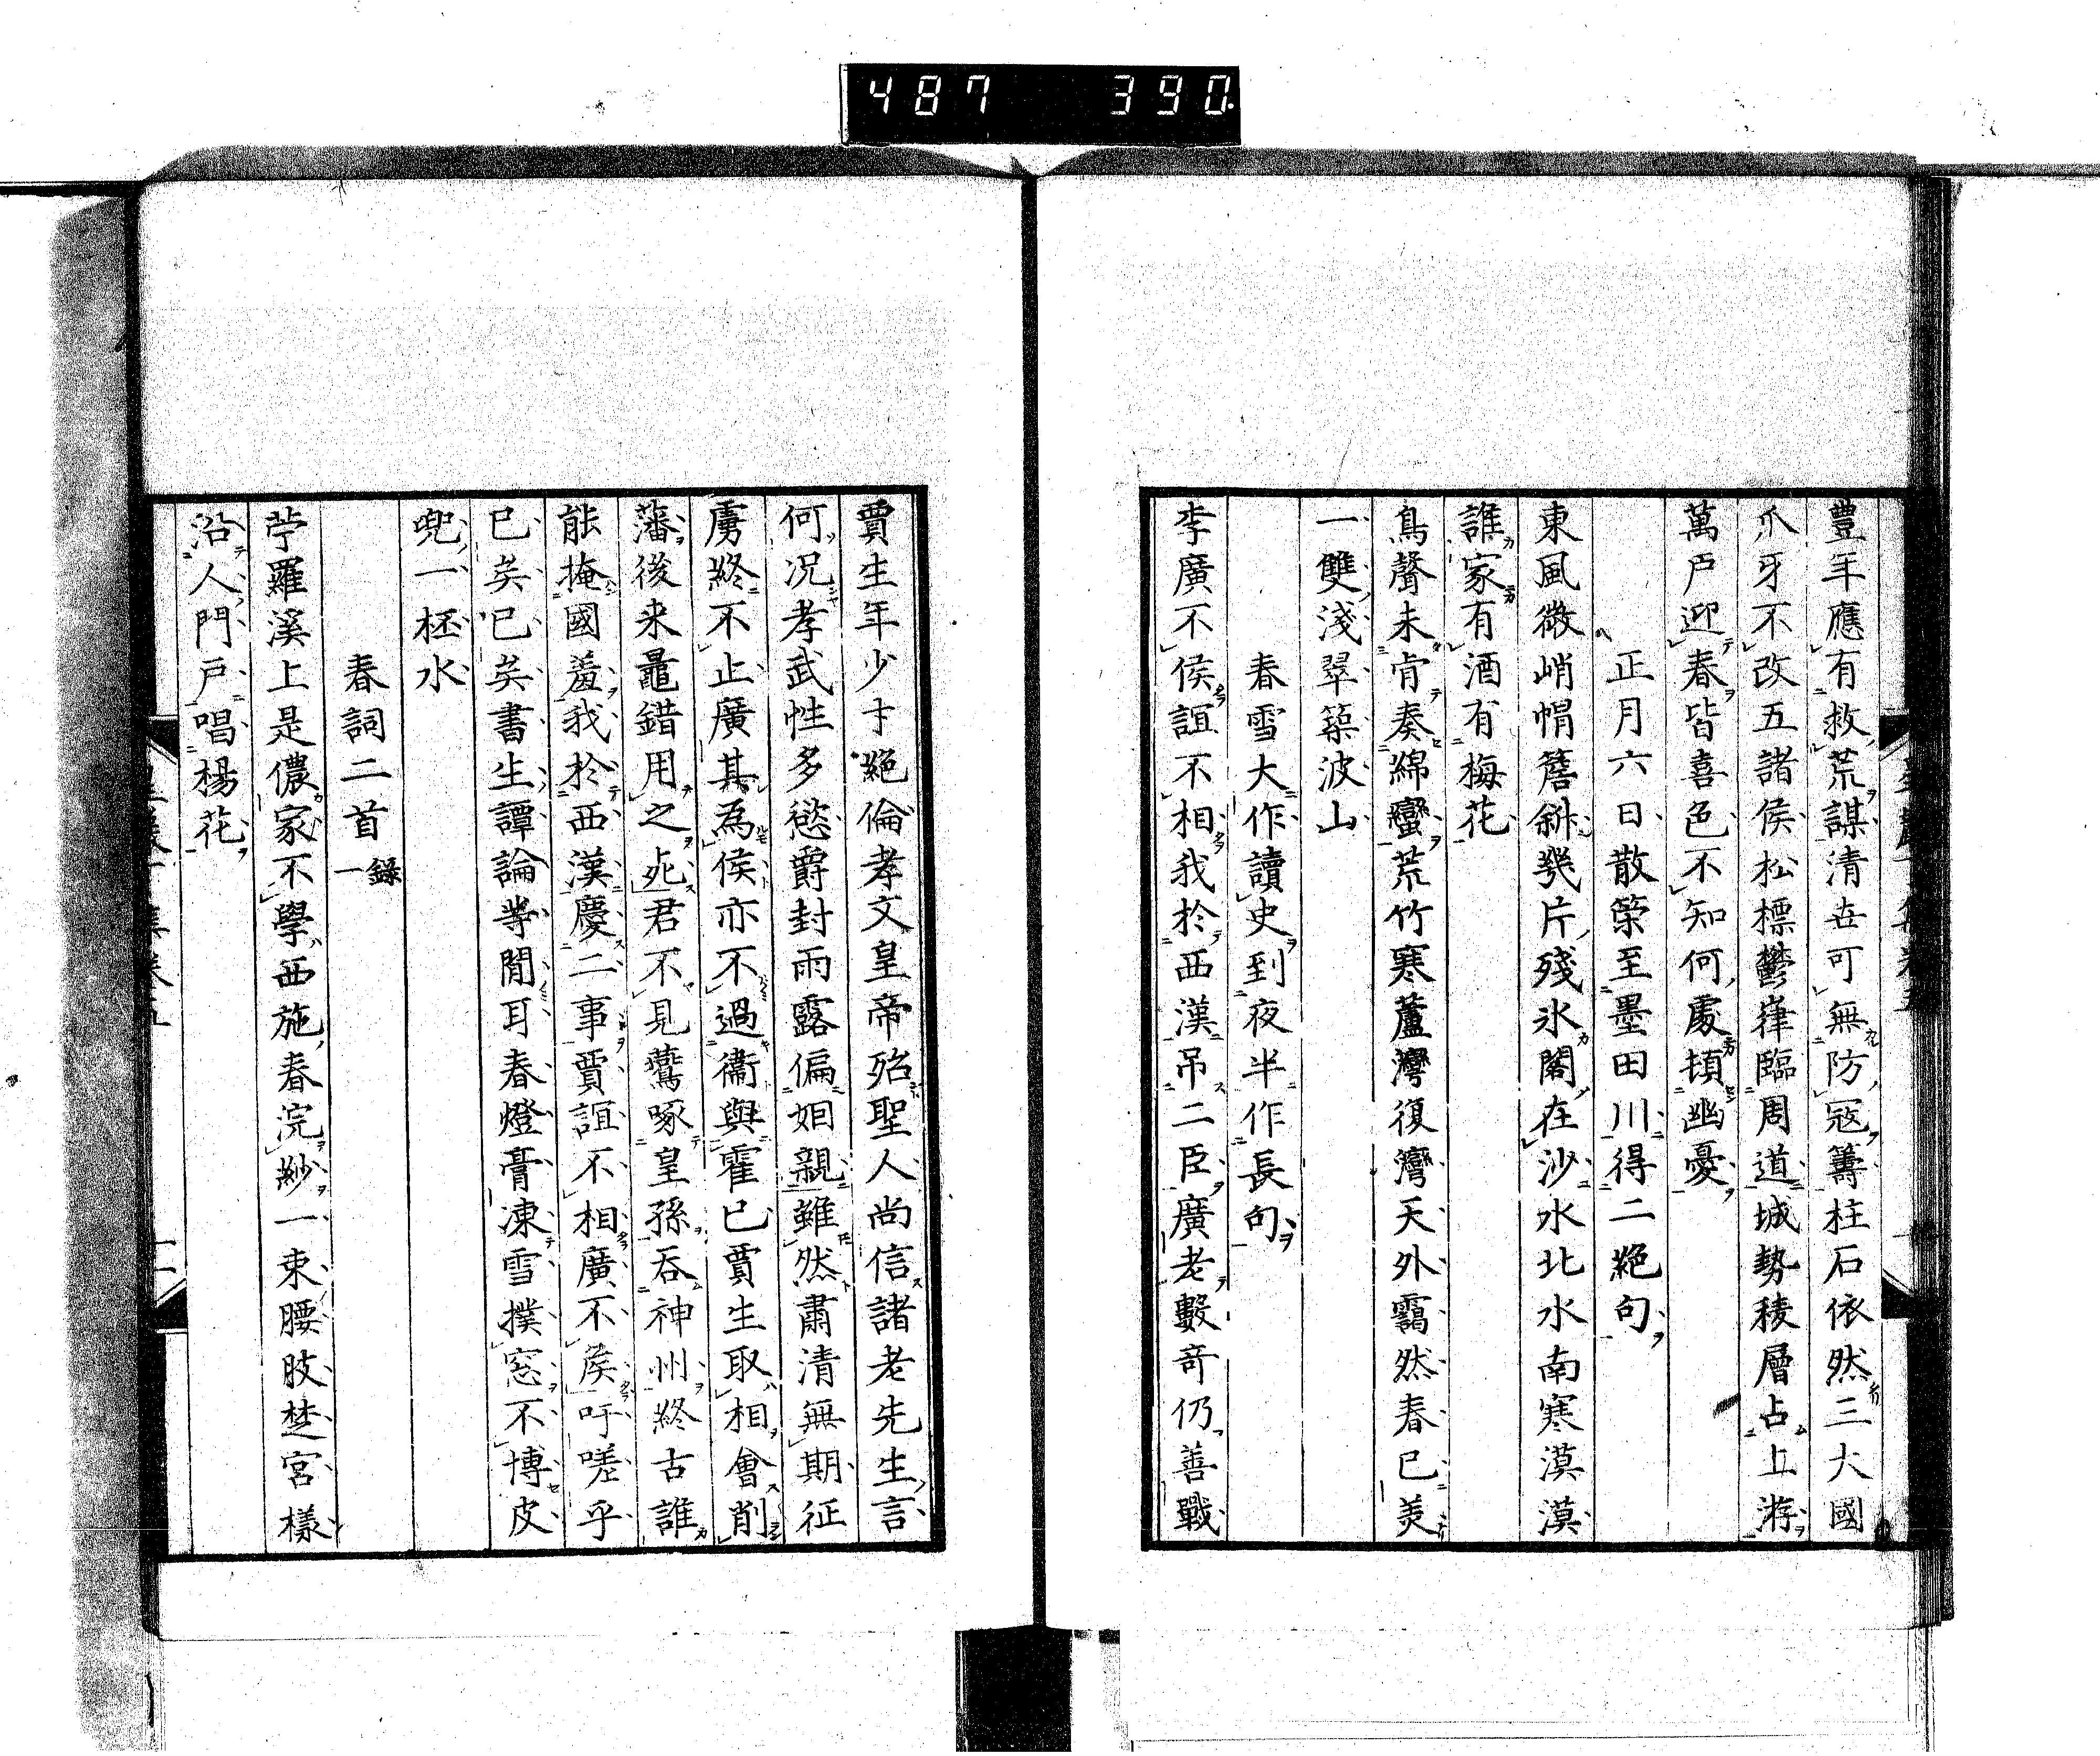 487 390
豊年應有救荒謀清世可無防寇籌柱石依然三大國
爪牙不改五諸侯松標鬱嵂臨周道城勢稜層占上游
萬戸迎春皆喜色不知何處頓幽憂
正月六日散策至墨田川得二絶句
東風微峭帽簷斜幾片殘氷閣在沙水北水南寒漠漠
誰家有酒有梅花
鳥聲未肯奏綿蠻荒竹寒蘆灣復灣天外靄然春已美
一雙淺翠築波山
春雪大作讀史到夜半作長句
李廣不侯誼不相我於西漢吊二臣廣老數竒仍善戰
賈生年少才絶倫孝文皇帝殆聖人尚信諸老先生言
何况孝武性多慾爵封雨露偏姻親雖然肅清無期征
虜終不止廣其為侯亦不過衞與霍已賈生取相會削
藩後来鼂錯用之死君不見鷰啄皇孫吞神州終古誰
能掩國羞我於西漢慶二事賈誼不相廣不矦吁嗟乎
已矣已矣書生譚論等閒耳春燈膏凍雪撲窓不博皮
兜一柸水
春詞二首 錄一
苧羅溪上是儂家不學西施春浣紗一束腰肢楚宮樣
沿人門戸唱楊花